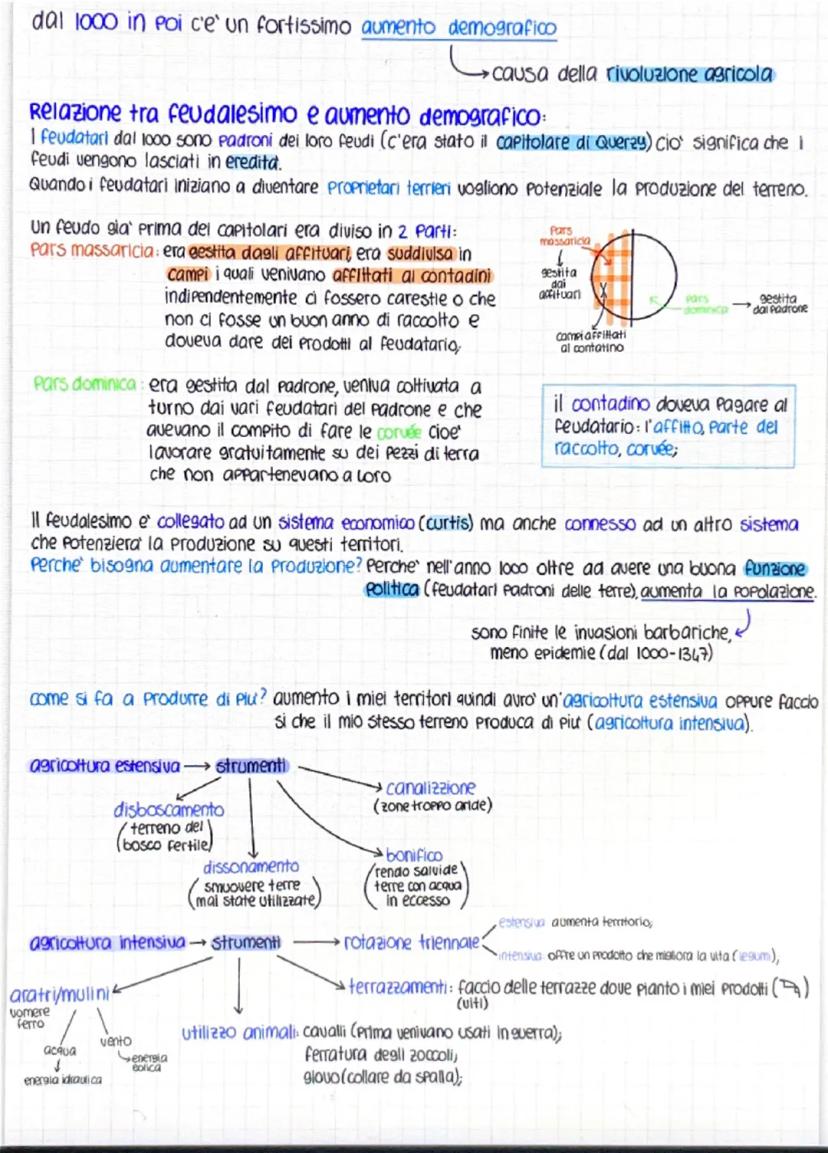 dal 1000 in poi c'e' un fortissimo aumento demografico
causa della rivoluzione agricola
Relazione tra feudalesimo e aumento demografico:
I feudatari dal 1000 sono padroni dei loro feudi (c'era stato il capitolare di Querzy) cio' significa che i
feudi vengono lasciati in eredita'.
Quando i feudatari iniziano a diventare proprietari terrieri vogliono potenziale la produzione del terreno.
Un feudo gia' prima dei capitolari era diviso in 2 parti:
Pars massaricia: era gestita dagli affituari, era suddivisa in
campi i quali venivano affittati ai contadini
indipendentemente ci fossero carestie o che
non ci fosse un buon anno di raccolto e
doveva dare dei prodotti al feudatario;
Pars
massaricia
gestita
dai
affituari
campi affittati
al contatino
pars
dominica
gestita
dal padrone
Pars dominica: era gestita dal padrone, veniva coltivata a
turno dai vari feudatari del padrone e che
avevano il compito di fare le corvée cioe'
lavorare gratuitamente su dei pezzi di terra
che non appartenevano a loro
il contadino doveva pagare al
feudatario: l'affitto, parte del
raccolto, corvée;
Il feudalesimo e' collegato ad un sistema economico (curtis) ma anche connesso ad un altro sistema
che potenziera' la produzione su questi territori.
Perche' bisogna aumentare la produzione? Perche' nell'anno 1000 oltre ad avere una buona funzione
politica (feudatari padroni delle terre), aumenta la popolazione.
sono finite le invasioni barbariche,
meno epidemie (dal 1000-1347)
come si fa a produrre di piu'? aumento i miei territori quindi avro' un'agricoltura estensiva oppure faccio
si che il mio stesso terreno produca di piu' (agricoltura intensiva).
agricoltura estensiva → strumenti
canalizzione
(zone troppo aride)
disboscamento
(terreno del
bosco fertile)
bonifico
(rendo salvide
terre con acqua
in eccesso)
dissonamento
(smuovere terre
mai state utilizzate)
estensiva aumenta territorio;
agricoltura intensiva → strumenti → rotazione triennale
intensiva: offre un prodotto che migliora la vita (legumi);
terrazzamenti: faccio delle terrazze dove pianto i miei prodotti ( )
(viti)
aratri/mulini
vomere
ferro
acqua
energia idraulica
vento
energia
eolica
utilizzo animali: cavalli (prima venivano usati in guerra);
ferratura degli zoccoli;
giovo (collare da spalla);